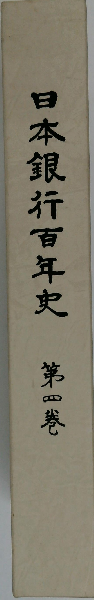 日本銀行百年史
第四巻